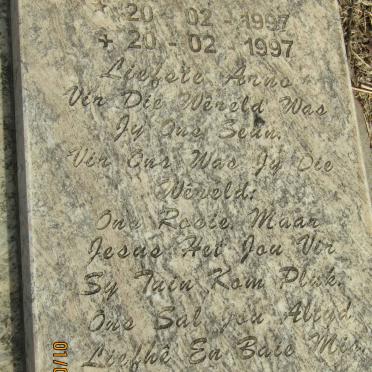 * 20 - 02 - 1997
+ 20 - 02 - 1997
Liefste Arno
Vir Die Wêreld Was
Jy Ons Seun.
Vir Ons Was Jy Die
Wêreld:
Ons Rosie Maar
Jesus Het Jou Vir
Sy Tuin Kom Pluk.
Ons Sal Jou Altyd
Liefhê En Baie Mis
01/0